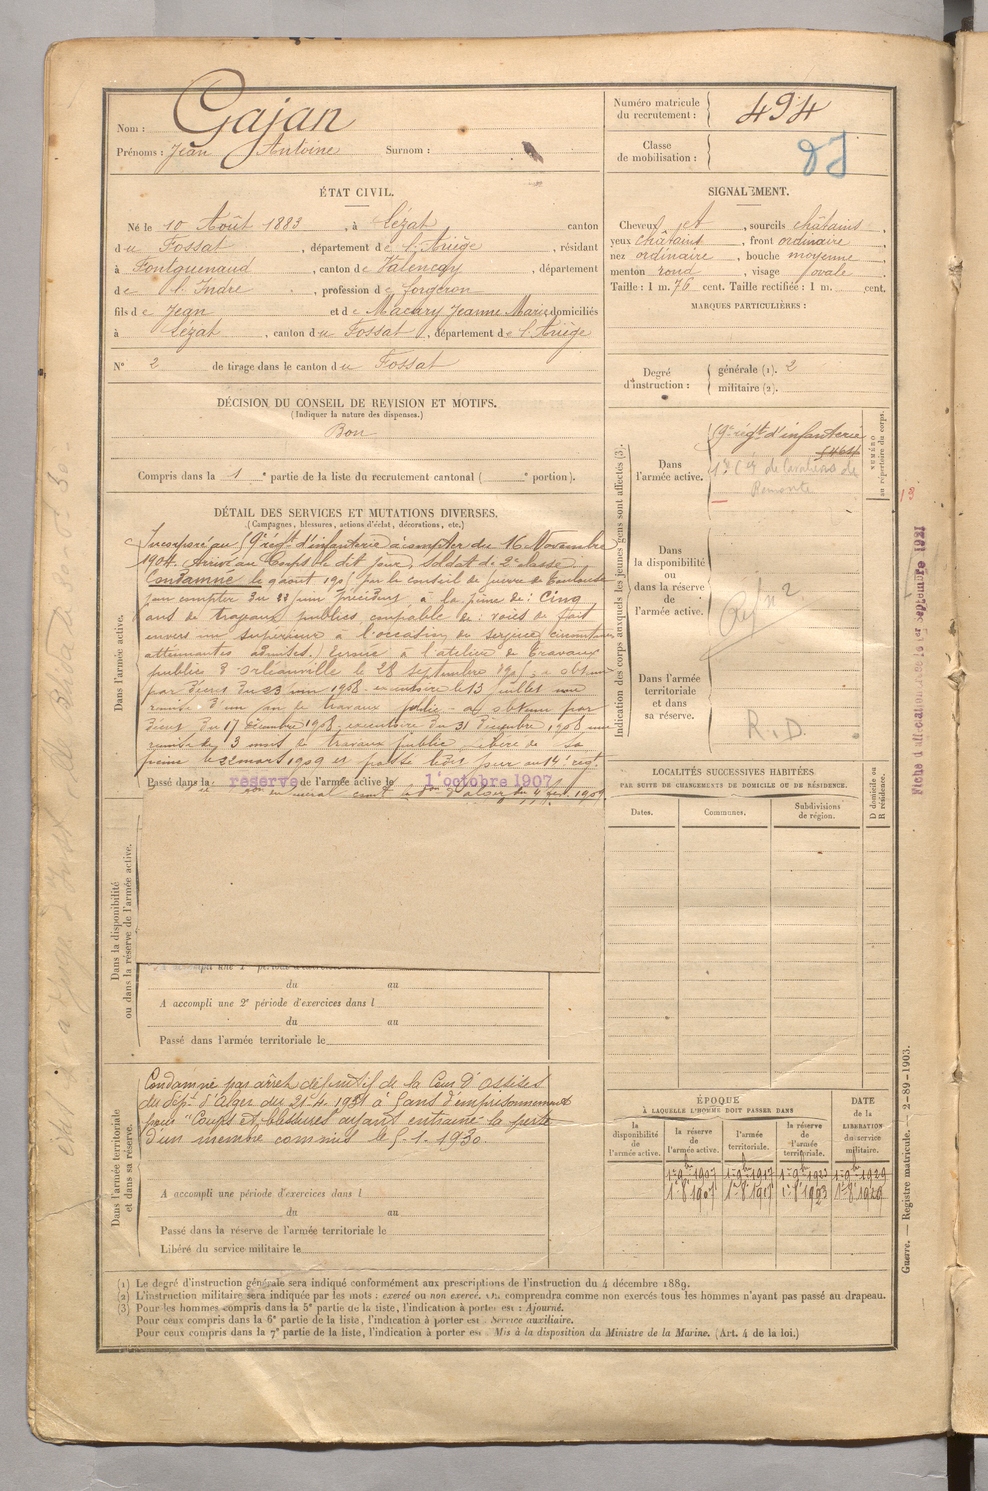 Nom : Gajan
Prénoms : Jean Antoine Surnom :
Numéro matricule du recrutement : 494
Classe de mobilisation :
ÉTAT CIVIL.
Né le 10 Août 1883, à Lézat canton
du Fossat, département de l'Ariège, résidant
à Fontguenand, canton de Valençay, département
de l'Indre, profession de forgeron
fils de Jean et de Macary Jeanne Marie domiciliés
à Lézat, canton du Fossat, département de l'Ariège
N° 2 de tirage dans le canton du Fossat
SIGNALEMENT.
Cheveux jet, sourcils châtains,
yeux châtains, front ordinaire,
nez ordinaire, bouche moyenne,
menton rond, visage ovale
Taille : 1 m. 76 cent. Taille rectifiée : 1 m. cent.
MARQUES PARTICULIÈRES :
Degré d'instruction :
générale (1). 2
militaire (2).
DÉCISION DU CONSEIL DE REVISION ET MOTIFS.
(Indiquer la nature des dispenses.)
Bon
Compris dans la 1e partie de la liste du recrutement cantonal ( e portion).
DÉTAIL DES SERVICES ET MUTATIONS DIVERSES.
(Campagnes, blessures, actions d'éclat, décorations, etc.)
Dans l'armée active.
Incorporé au régt d'infanterie à compter du 16 Novembre
1904. Arrivé au Corps le dit jour, soldat de 2e classe.
Condamné le 9 août par le conseil de guerre de Toulouse
à la peine de : Cinq
ans de travaux publics, coupable de : voies de fait
envers un supérieur à l'occasion du service, circonstances
atténuantes admises. Ecroué à l'atelier de Travaux
publics d'Orléansville le 28 septembre a obtenu
par décret du 23 1908 exécutoire le 13 juillet une
remise d'un an de travaux public - a obtenu par
décret du 17 Décembre 1908, exécutoire du 31 Décembre 1908 une
remise de 3 mois de travaux public libéré de sa
peine le 22 mars 1909 et passé le dit jour au 14e régt
Passé dans la réserve de l'armée active le 1er octobre 1907
1909
Indication des corps auxquels les jeunes gens sont affectés (3).
NUMÉRO au répertoire du corps.
Dans l'armée active.
régt d'infanterie
de Cavaliers de
Remonte
Dans la disponibilité ou dans la réserve de l'armée active.
Dans l'armée territoriale et dans sa réserve.
R.D.
Fiche d'affectation 1er septembre 1921
LOCALITÉS SUCCESSIVES HABITÉES
PAR SUITE DE CHANGEMENTS DE DOMICILE OU DE RÉSIDENCE.
Dates. Communes. Subdivisions de région. D domicile ou R résidence.
Dans la disponibilité ou dans la réserve de l'armée active.
du au
A accompli une 2e période d'exercices dans l
du au
Passé dans l'armée territoriale le
Dans l'armée territoriale et dans sa réserve.
Condamné par arrêt définitif de la Cour d'Assises
du dépt d'Alger du 21-4-1931 à 5 ans d'emprisonnement
pour "Coups et blessures ayant entrainé la perte
d'un membre commis le 5-1-1930.
A accompli une période d'exercices dans l
du au
Passé dans la réserve de l'armée territoriale le
Libéré du service militaire le
ÉPOQUE
À LAQUELLE L'HOMME DOIT PASSER DANS
la disponibilité de l'armée active.
la réserve de l'armée active.
l'armée territoriale.
la réserve de l'armée territoriale.
DATE de la LIBÉRATION du service militaire.
Guerre. — Registre matricule. — 2-89-1903.
(1) Le degré d'instruction générale sera indiqué conformément aux prescriptions de l'instruction du 4 décembre 1889.
(2) L'instruction militaire sera indiquée par les mots : exercé ou non exercé. On comprendra comme non exercés tous les hommes n'ayant pas passé au drapeau.
(3) Pour les hommes compris dans la 5e partie de la liste, l'indication à porter est : Ajourné.
Pour ceux compris dans la 6e partie de la liste, l'indication à porter est : Service auxiliaire.
Pour ceux compris dans la 7e partie de la liste, l'indication à porter est : Mis à la disposition du Ministre de la Marine. (Art. 4 de la loi.)